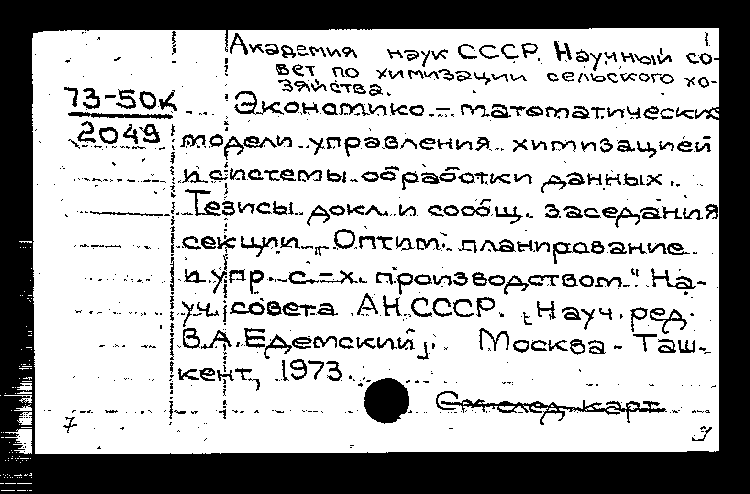 Академия наук СССР. Научный со-
вет по химизации сельского хо-
зяйства.
73-50к
2049
Экономико-математические
модели управления химизацией
и системы обработки данных.
Тезисы докл. и сообщ. заседания
секции „Оптим. планирование
и упр. с.-х. производством" На-
уч. совета АН СССР. [Науч. ред.
В.А. Едемский]. Москва - Таш-
кент, 1973.
См след. карт
7
Э